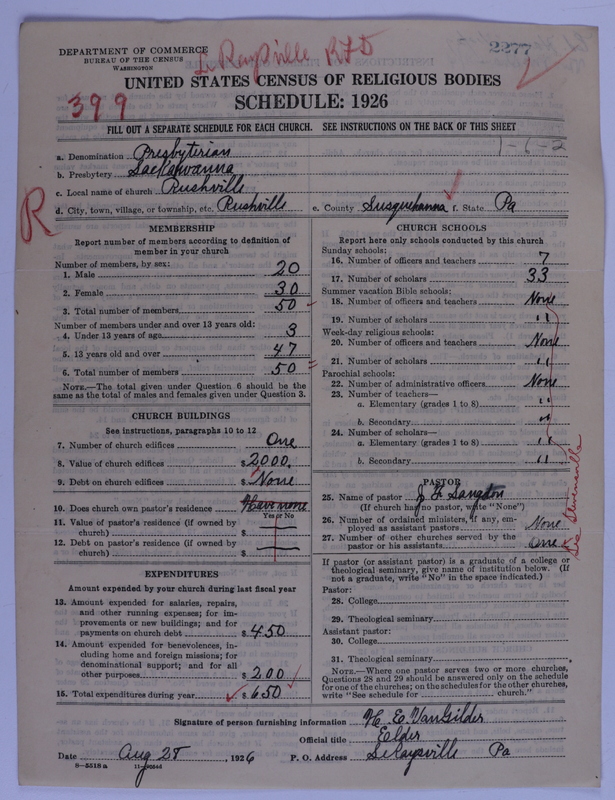 DEPARTMENT OF COMMERCE
BUREAU OF THE CENSUS
WASHINGTON
Le Raysville RFD
2277
UNITED STATES CENSUS OF RELIGIOUS BODIES
399
SCHEDULE: 1926
FILL OUT A SEPARATE SCHEDULE FOR EACH CHURCH. SEE INSTRUCTIONS ON THE BACK OF THIS SHEET
1-6-2
a. Denomination Presbyterian
b. Presbytery Lackawanna
c. Local name of church Rushville
d. City, town, village, or township, etc. Rushville e. County Susquehanna f. State Pa
R
MEMBERSHIP
Report number of members according to definition of
member in your church
Number of members, by sex:
1. Male 20
2. Female 30
3. Total number of members 50
Number of members under and over 13 years old:
4. Under 13 years of age 3
5. 13 years old and over 47
6. Total number of members 50
NOTE.—The total given under Question 6 should be
same as the total of males and females given under Question 3.
CHURCH BUILDINGS
See instructions, paragraphs 10 to 12
7. Number of church edifices One
8. Value of church edifices $2000.
9. Debt on church edifices $ None
10. Does church own pastor's residence? Have none
Yes or No
11. Value of pastor's residence (if owned by
church) $
12. Debt on pastor's residence (if owned by
church) $
EXPENDITURES
Amount expended by your church during last fiscal year
13. Amount expended for salaries, repairs,
and other running expenses; for im-
provements or new buildings; and for
payments on church debt $ 450
14. Amount expended for benevolences, in-
cluding home and foreign missions; for
denominational support; and for all
other purposes $ 200
15. Total expenditures during year $ 650
CHURCH SCHOOLS
Report here only schools conducted by this church
Sunday schools:
16. Number of officers and teachers 7
17. Number of scholars 33
Summer vacation Bible schools:
18. Number of officers and teachers None
19. Number of scholars "
Week-day religious schools:
20. Number of officers and teachers None
21. Number of scholars "
Parochial schools:
22. Number of administrative officers None
23. Number of teachers—
a. Elementary (grades 1 to 8) "
b. Secondary "
24. Number of scholars—
a. Elementary (grades 1 to 8) "
b. Secondary "
PASTOR
25. Name of pastor J H Langdon
(If church has no pastor, write "None")
26. Number of ordained ministers, if any, em-
ployed as assistant pastors None
27. Number of other churches served by the
pastor or his assistants One
See Stevensville
If pastor (or assistant pastor) is a graduate of a college or
theological seminary, give name of institution below. (If
not a graduate, write "No" in the space indicated.)
Pastor:
28. College
29. Theological seminary
Assistant pastor:
30. College
31. Theological seminary
NOTE.—Where one pastor serves two or more churches,
Questions 28 and 29 should be answered only on the schedule
for one of the churches; on the schedules for the other churches,
write "See schedule for church."
Signature of person furnishing information H. E. VanGilder
Official title Elder
Date Aug 28, 1926 P. O. Address LeRaysville Pa
8-5518a